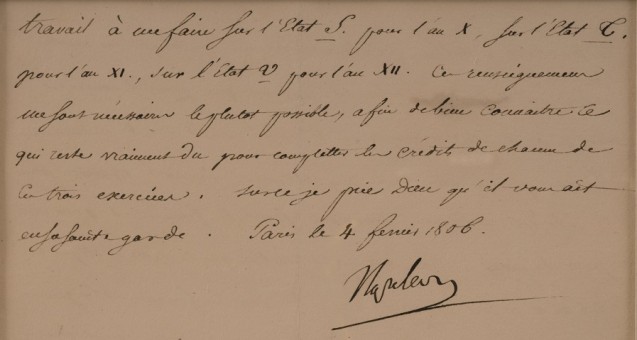 travail à me faire sur l'Etat S. pour l'an X, sur l'Etat T.
pour l'an XI., sur l'Etat V pour l'an XII. Ces renseignemens
me sont nécessaires le plutot possible, afin de bien connaitre ce
qui reste vraiment du pour completter les crédits de chacun de
ces trois exercices. Sur ce je prie Dieu qu'il vous ait
en sa sainte garde. Paris le 4 fevrier 1806.
Napoleon